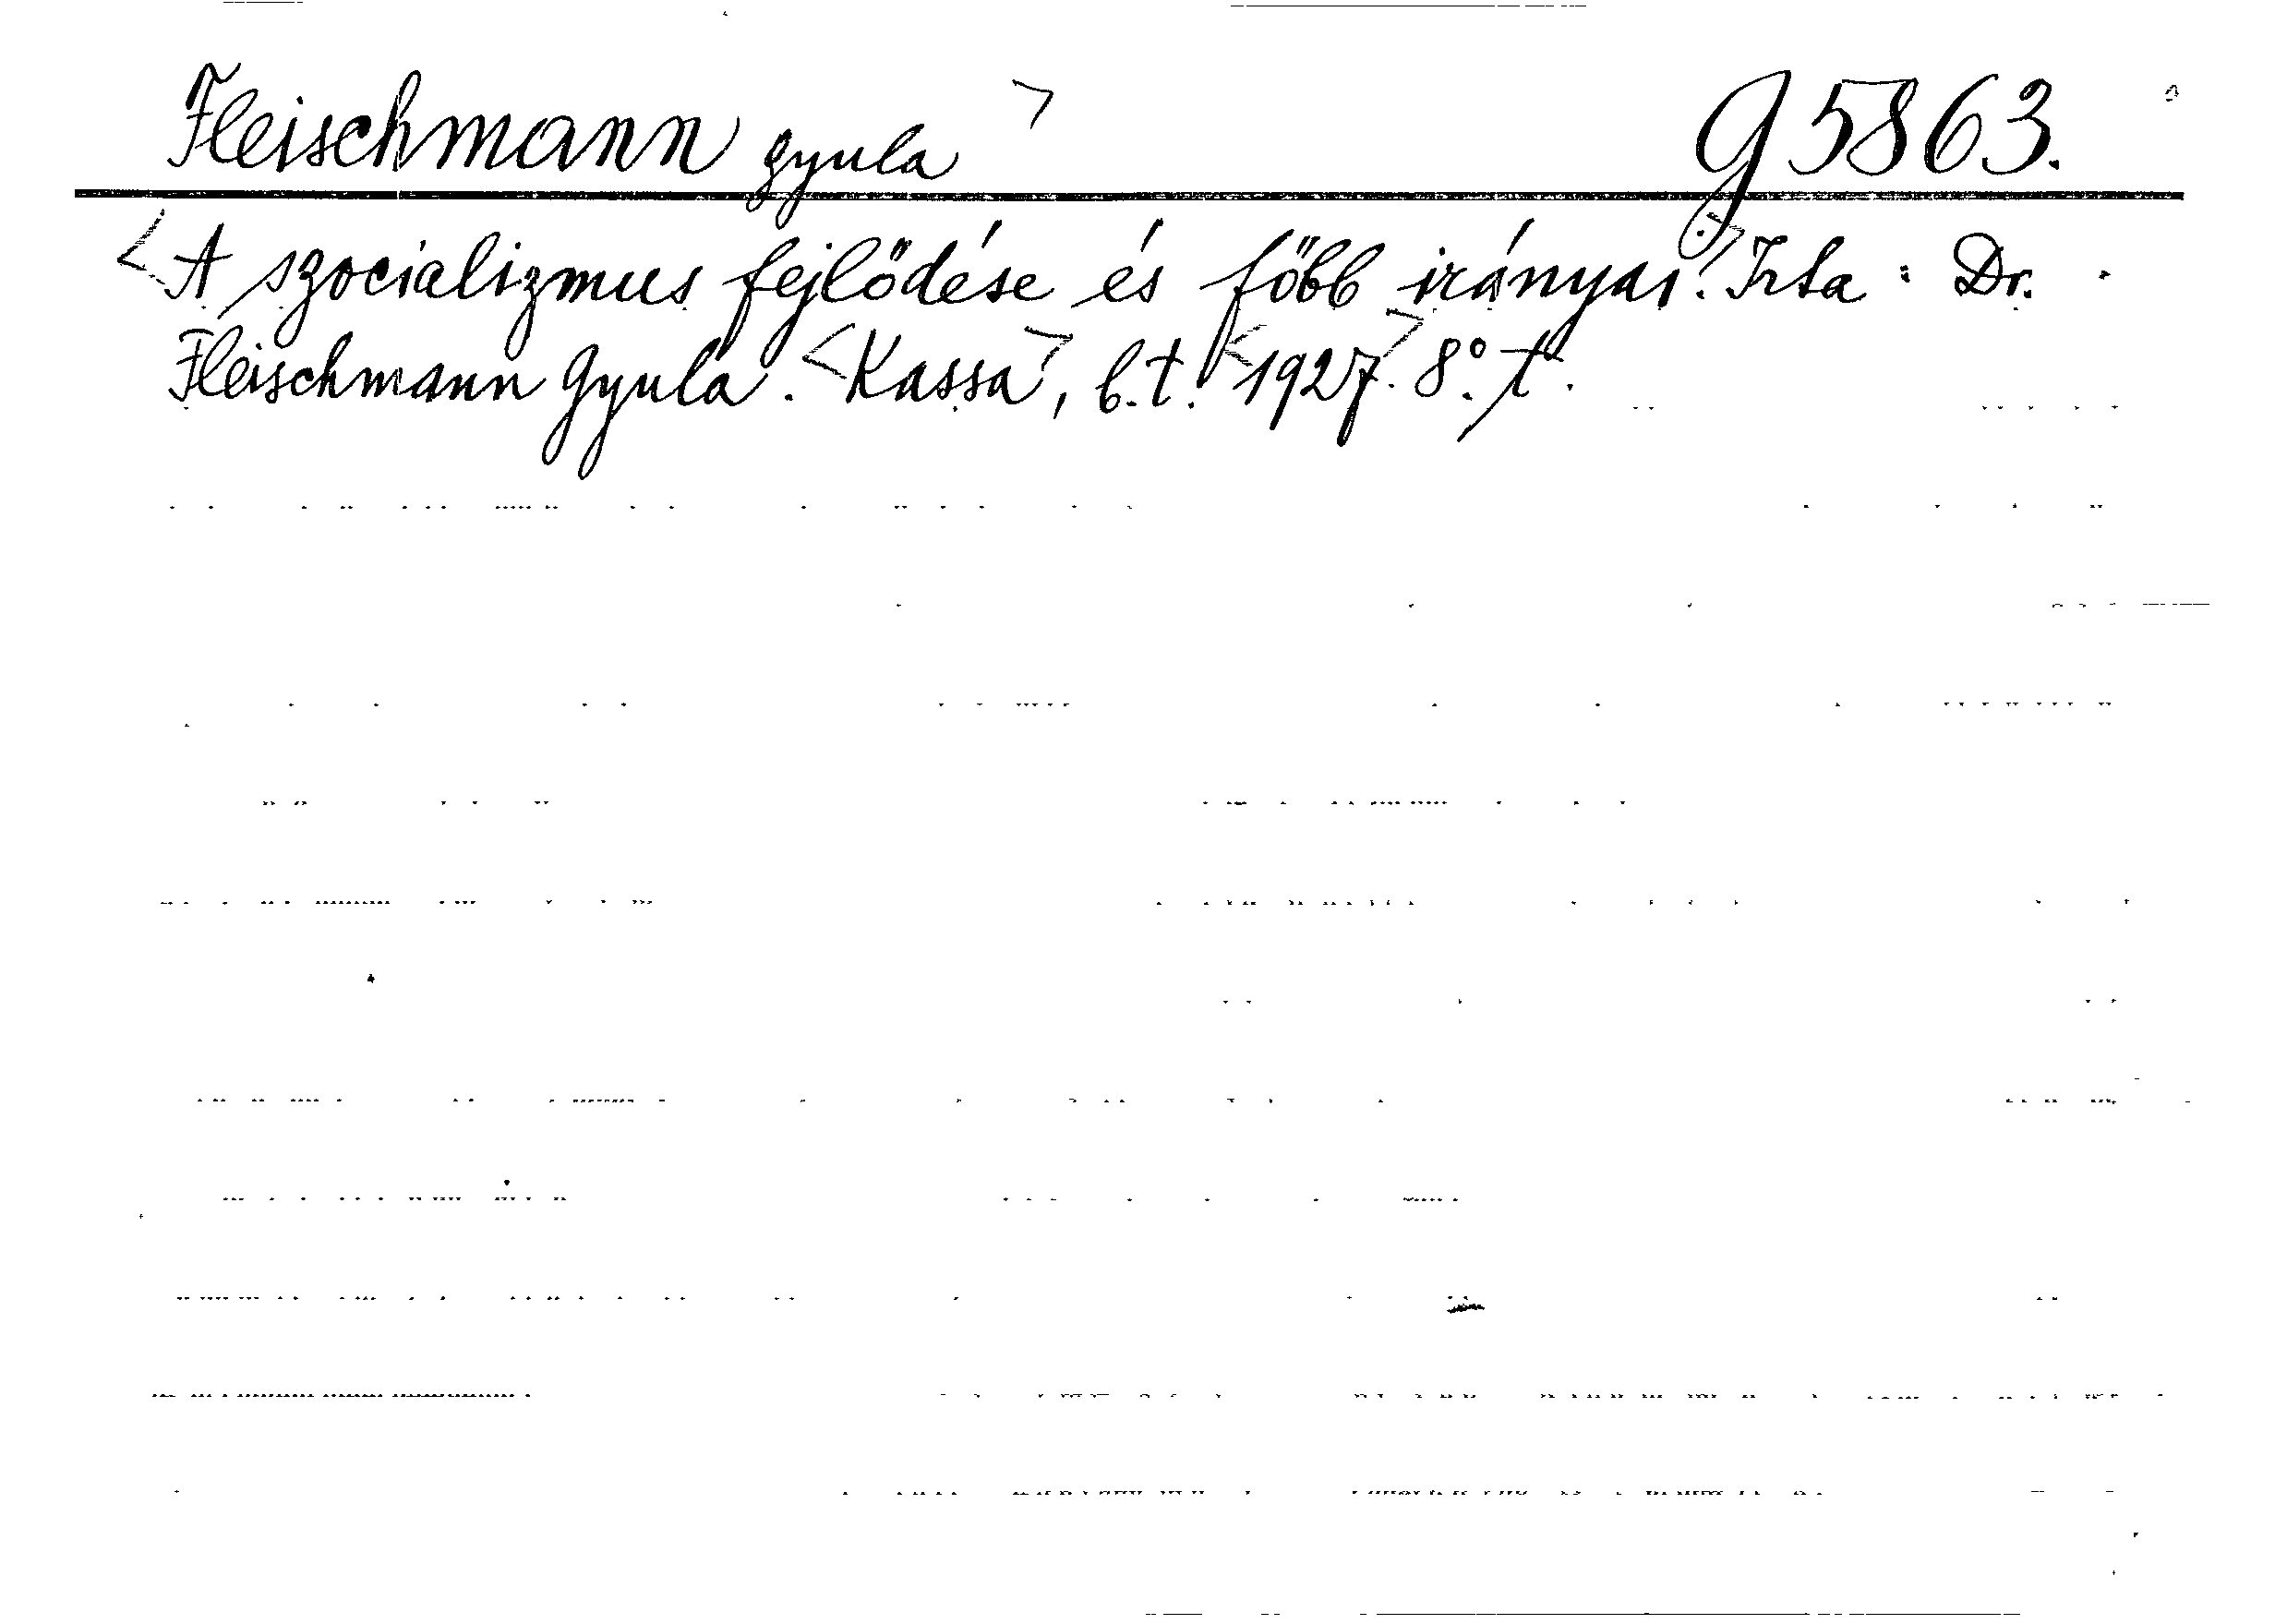 Fleischmann Gyula > G 5863.
<A szocializmus fejlödése és főbb irányai.> Irta: Dr.
Fleischmann Gyula. <Kassa>, b.t. <1927>. 8°. t.